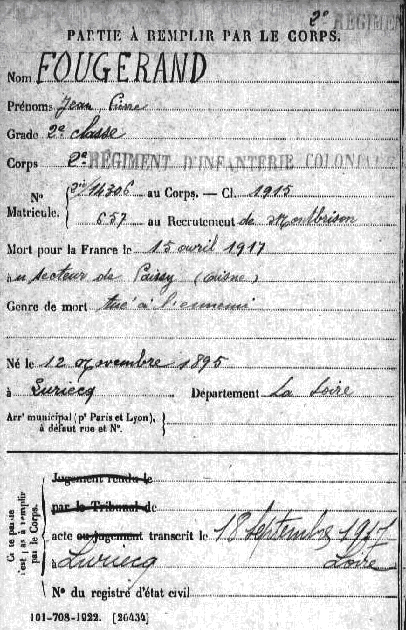 2e RÉGIMEN
PARTIE À REMPLIR PAR LE CORPS.
Nom FOUGERAND
Prénoms Jean Pierre
Grade 2e classe
Corps 2e RÉGIMENT D'INFANTERIE COLONIALE
No Matricule. { 14306 au Corps. — Cl. 1915
657 au Recrutement de Montbrison
Mort pour la France le 15 avril 1917
à secteur de Paissy (Aisne)
Genre de mort tué à l'ennemi
Né le 12 Novembre 1895
à Luriecq Département La Loire
Arrt municipal (pr Paris et Lyon), à défaut rue et No. }
Ce te partie n'est pas à remplir par le Corps. {
Jugement rendu le
par le Tribunal de
acte ou jugement transcrit le 18 Septembre 1917
à Luriecq Loire
No du registre d'état civil
101-708-1922. [26434]